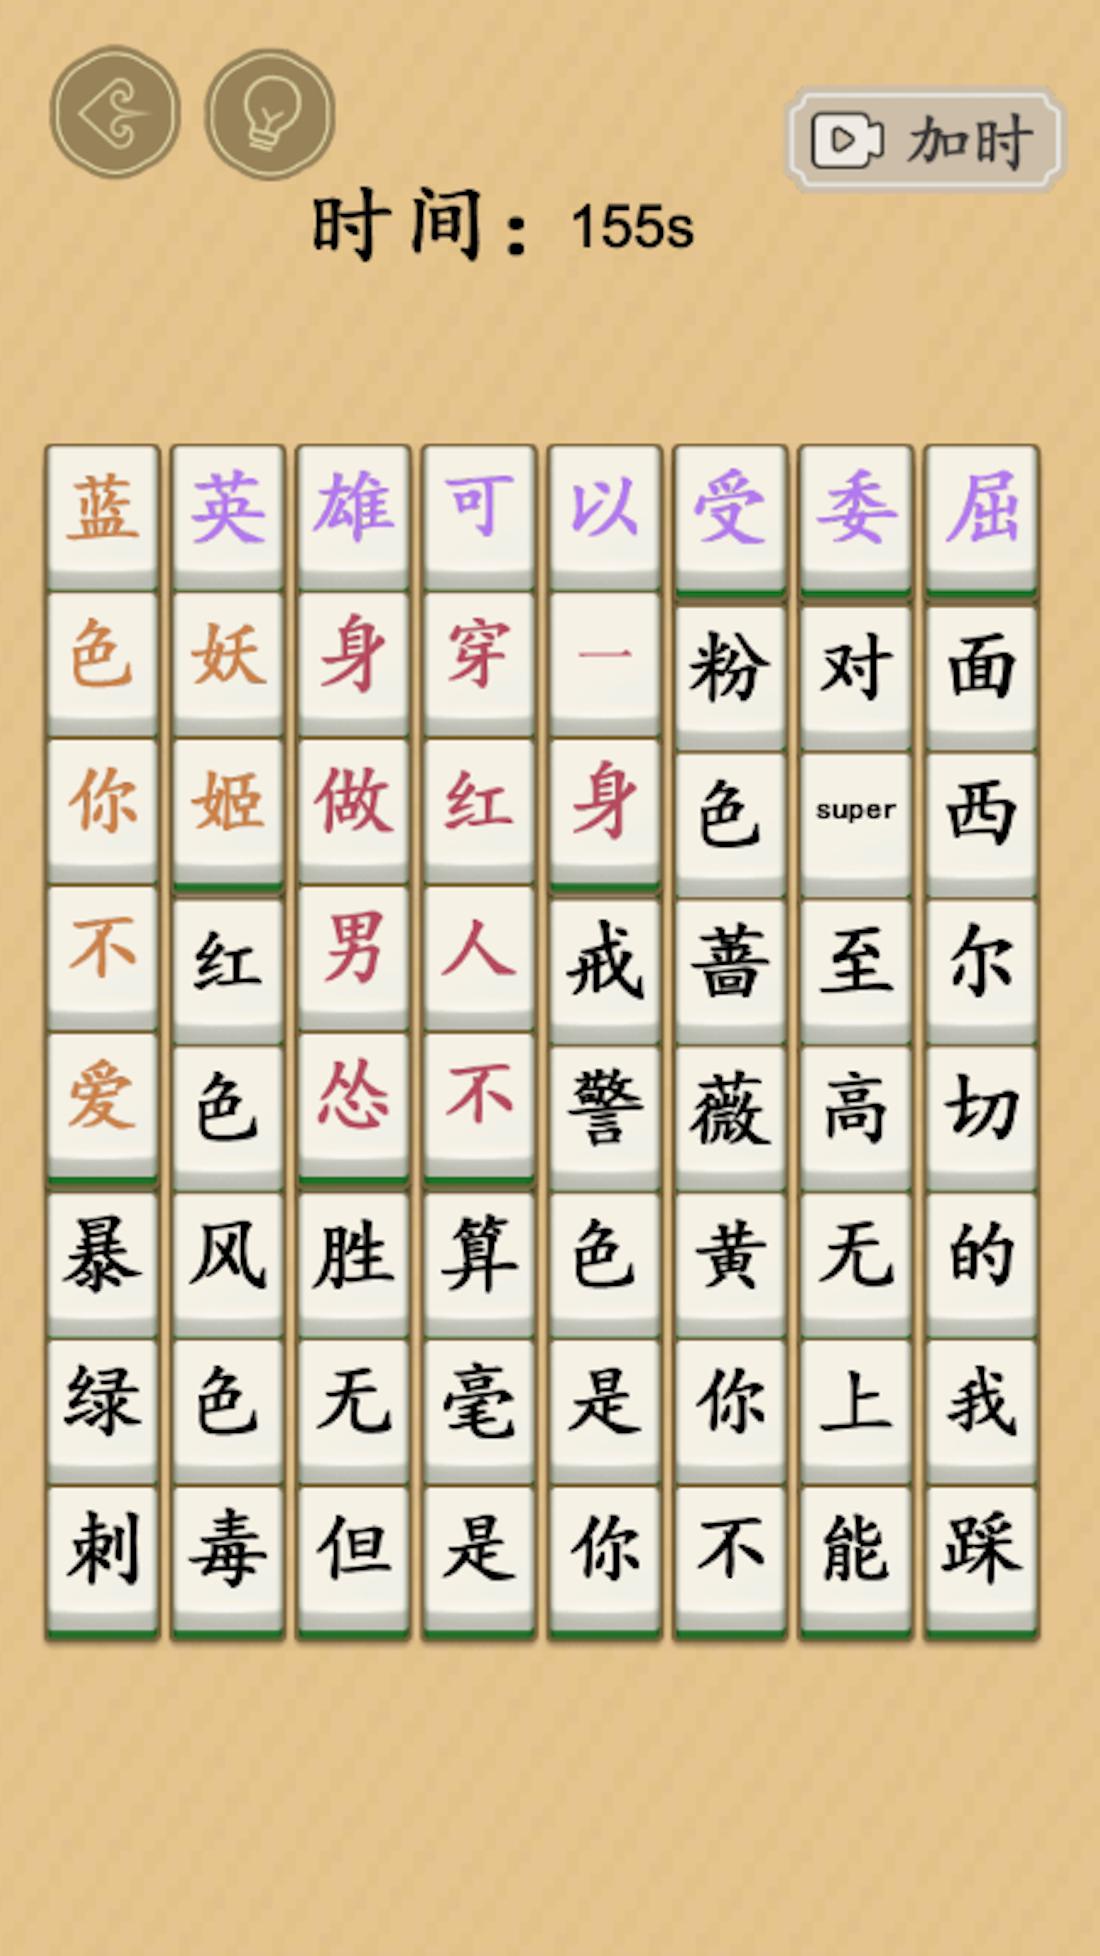 加时
时间：155s
蓝英雄可以受委屈
色妖身穿一粉对面
你姬做红身色super西
不红男人戒蔷至尔
爱色怂不警薇高切
暴风胜算色黄无的
绿色无毫是你上我
刺毒但是你不能踩